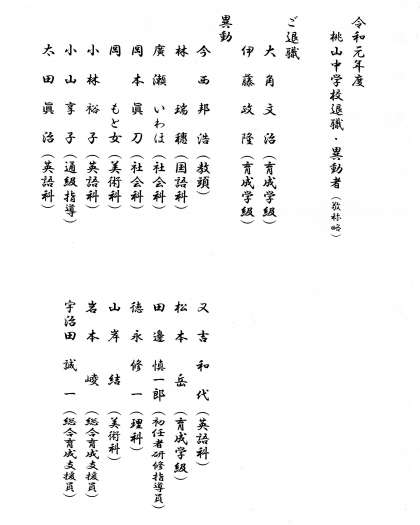 令和元年度
桃山中学校退職・異動者（敬称略）
ご退職
大角文治（育成学級）
伊藤政隆（育成学級）
異動
今西邦浩（教頭）
林瑞穂（国語科）
廣瀬いわほ（社会科）
岡本眞刀（社会科）
岡もと女（美術科）
小林裕子（英語科）
小山享子（通級指導）
太田眞治（英語科）
又吉和代（英語科）
松本岳（育成学級）
田邉慎一郎（初任者研修指導員）
徳永修一（理科）
山岸結（美術科）
岩本崚（総合育成支援員）
宇治田誠一（総合育成支援員）